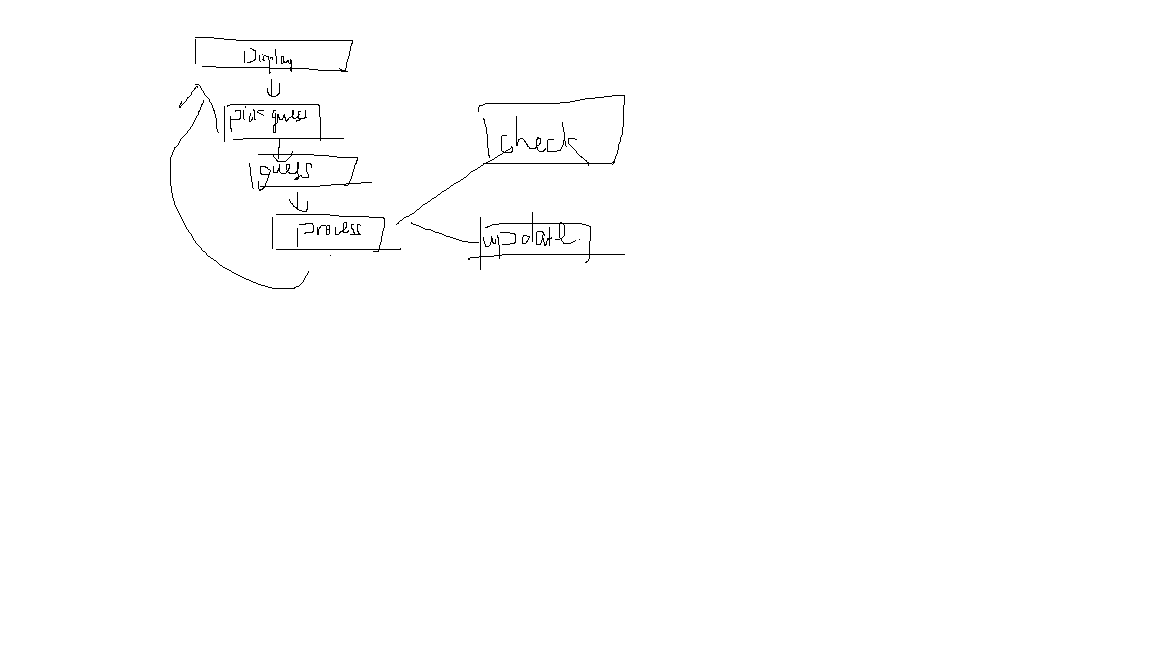 Display
pick guess
guess
process
check
update